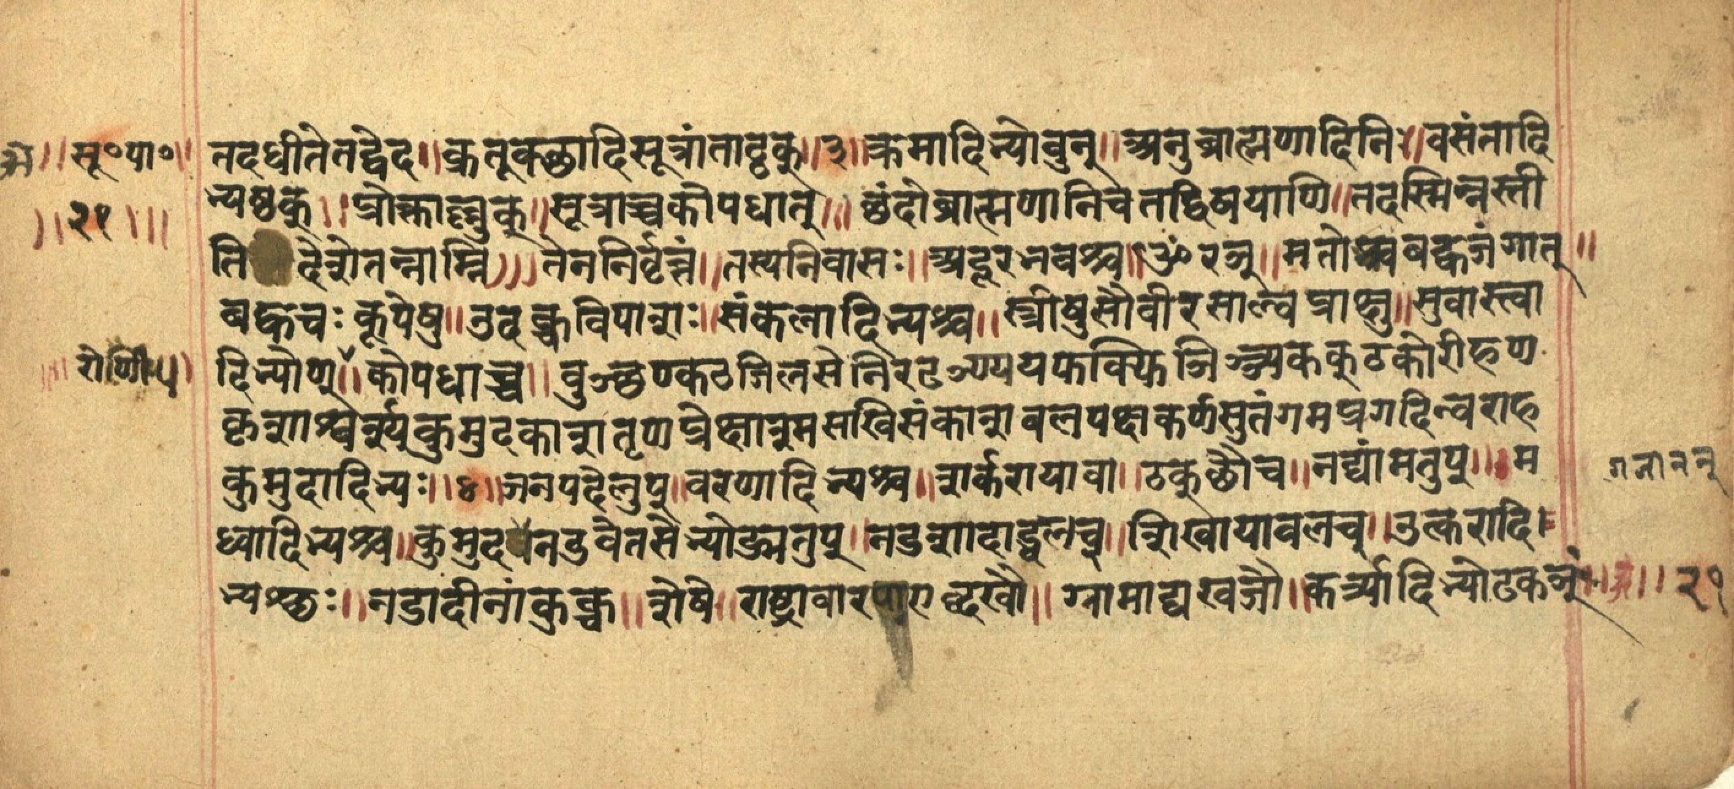 अ॥ सू॰पा॰॥ तदधीतेतद्वेद॥ क्रतूक्थादिसूत्रांताट्ठक्॥३॥ क्रमादिभ्योवुन्॥ अनुब्राह्मणादिनिः॥ वसंतादि
॥२१॥॥ भ्यष्ठक्॥ प्रोक्ताल्लुक्॥ सूत्राच्चकोपधात्॥ छंदोब्राह्मणानिचतद्विषयाणि॥ तदस्मिन्नस्ती
ति देशेतन्नाम्नि॥ तेननिर्वृत्तं॥ तस्यनिवासः॥ अदूरभवश्च॥ ओरञ्॥ मतोश्चबह्वजंगात्॥
बह्वचः कूपेषु॥ उदक्चविपाशः॥ संकलादिभ्यश्च॥ स्त्रीषुसौवीरसाल्वप्राक्षु॥ सुवास्त्वा
दिभ्योण्॥ कोपधाच्च॥ वुञ्छण्कठजिलसेनिरढञ्ण्ययफक्फिञिञ्ञ्यककुठकोरीहण
कृशाश्वर्श्यकुमुदकाशतृणप्रेक्षाश्मसखिसंकाशबलपक्षकर्णसुतंगमप्रगदिन्वराह
कुमुदादिभ्यः॥४॥ जनपदेलुप्॥ वरणादिभ्यश्च॥ शर्करायावा॥ ठक्छौच॥ नद्यांमतुप्॥ म
ध्वादिभ्यश्च॥ कुमुद नडवेतसेभ्योड्मतुप्॥ नडशादाड्वलच्॥ शिखायावलच्॥ उत्करादि
भ्यश्छः॥ नडादीनांकुक्च॥ शेषे॥ राष्ट्रावारपाराद्घखौ॥ ग्रामाद्यखञौ॥ कर्त्र्यादिभ्योढकञ्॥ २१